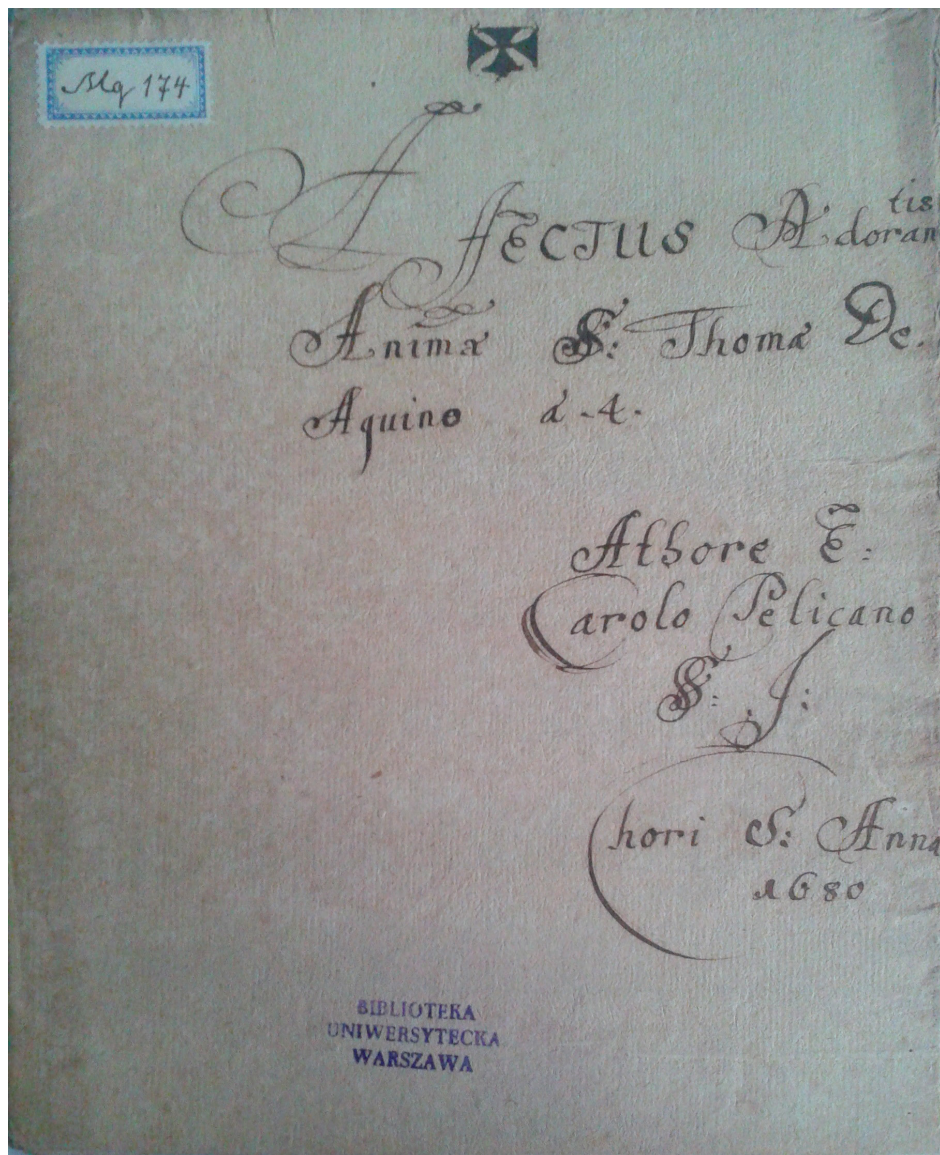 Mq 174
Affectus Adorantis
Animæ S: Thomæ De.
Aquino à .4.
Athore E:
Carolo Pelicano
S: J:
Chori S: Anna
1680
BIBLIOTEKA
UNIWERSYTECKA
WARSZAWA